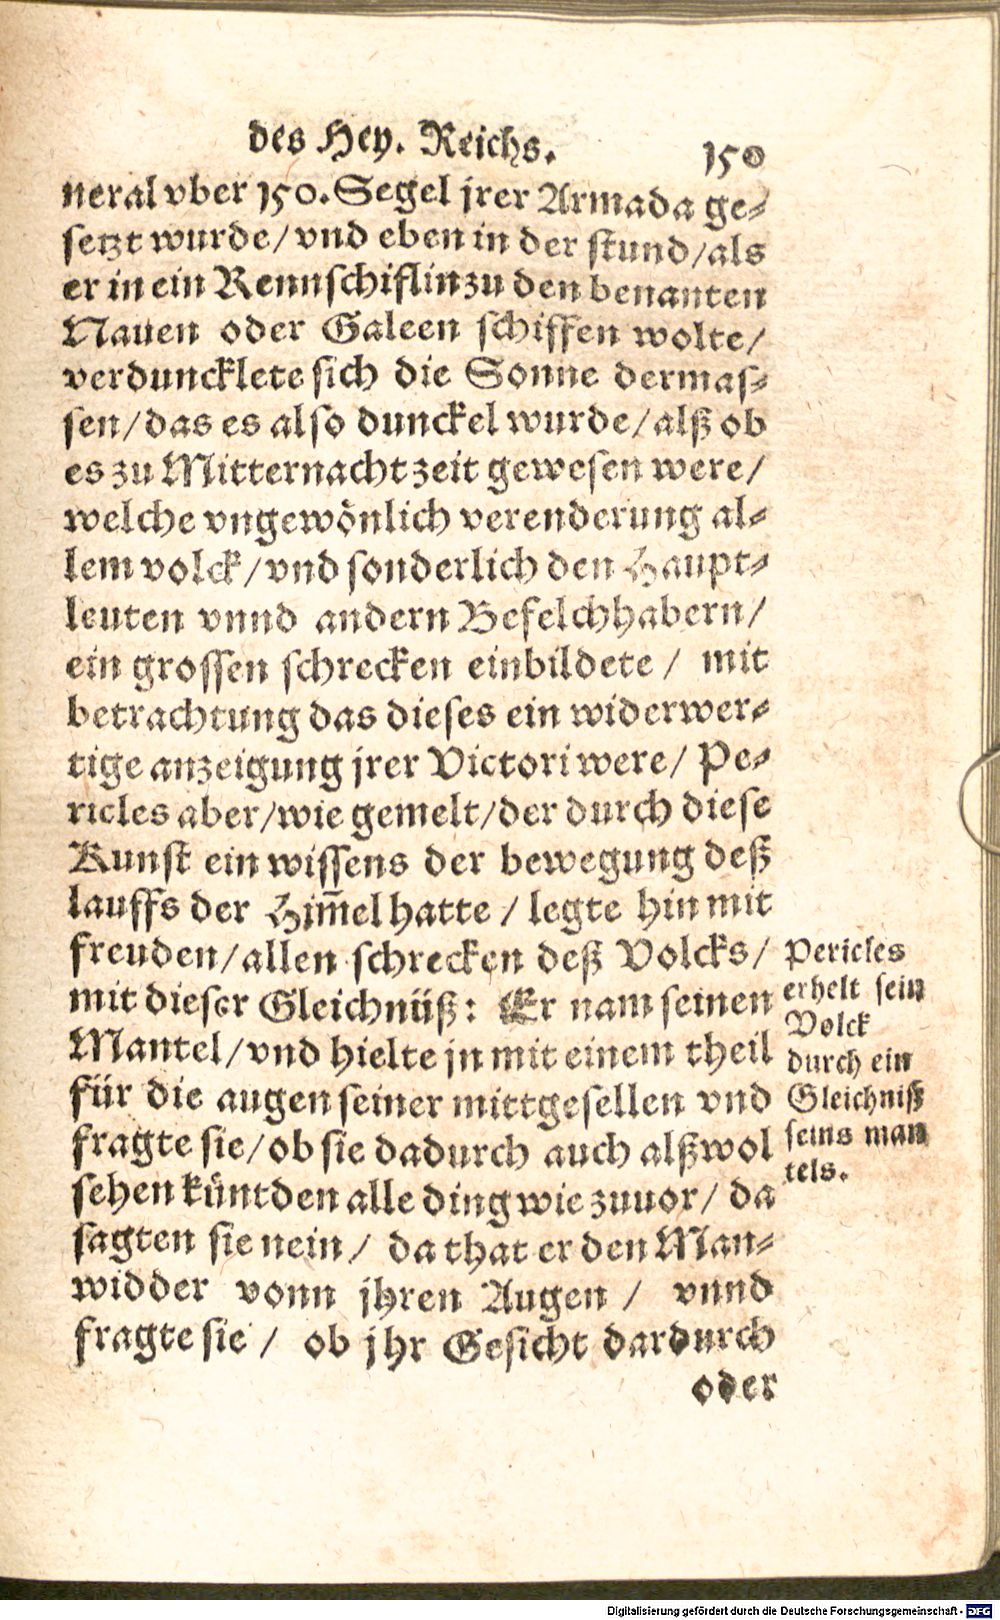 des Hey. Reichs. 150
neral vber 150. Segel jrer Armada ge⸗
setzt wurde/ vnd eben in der stund/als
er in ein Rennschiflin zu den benanten
Nauen oder Galeen schiffen wolte/
verduncklete sich die Sonne dermas⸗
sen/das es also dunckel wurde/alß ob
es zu Mitternacht zeit gewesen were/
welche vngewönlich verenderung al⸗
lem volck/vnd sonderlich den Haupt⸗
leuten vnnd andern Befelchhabern/
ein grossen schrecken einbildete / mit
betrachtung das dieses ein widerwer⸗
tige anzeigung jrer Victori were/ Pe⸗
ricles aber/wie gemelt/der durch diese
Kunst ein wissens der bewegung deß
lauffs der Him̄el hatte / legte hin mit
freuden/allen schrecken deß Volcks/
mit dieser Gleichnüß: Er nam seinen
Mantel/vnd hielte jn mit einem theil
für die augen seiner mittgesellen vnd
fragte sie/ob sie dadurch auch alßwol
sehen küntden alle ding wie zuuor/ da
sagten sie nein/ da that er den Man⸗
widder vonn jhren Augen / vnnd
fragte sie / ob jhr Gesicht dardurch
oder
Pericles
erhelt sein
Volck
durch ein
Gleichniß
seins man
tels.
Digitalisierung gefördert durch die Deutsche Forschungsgemeinschaft - DFG